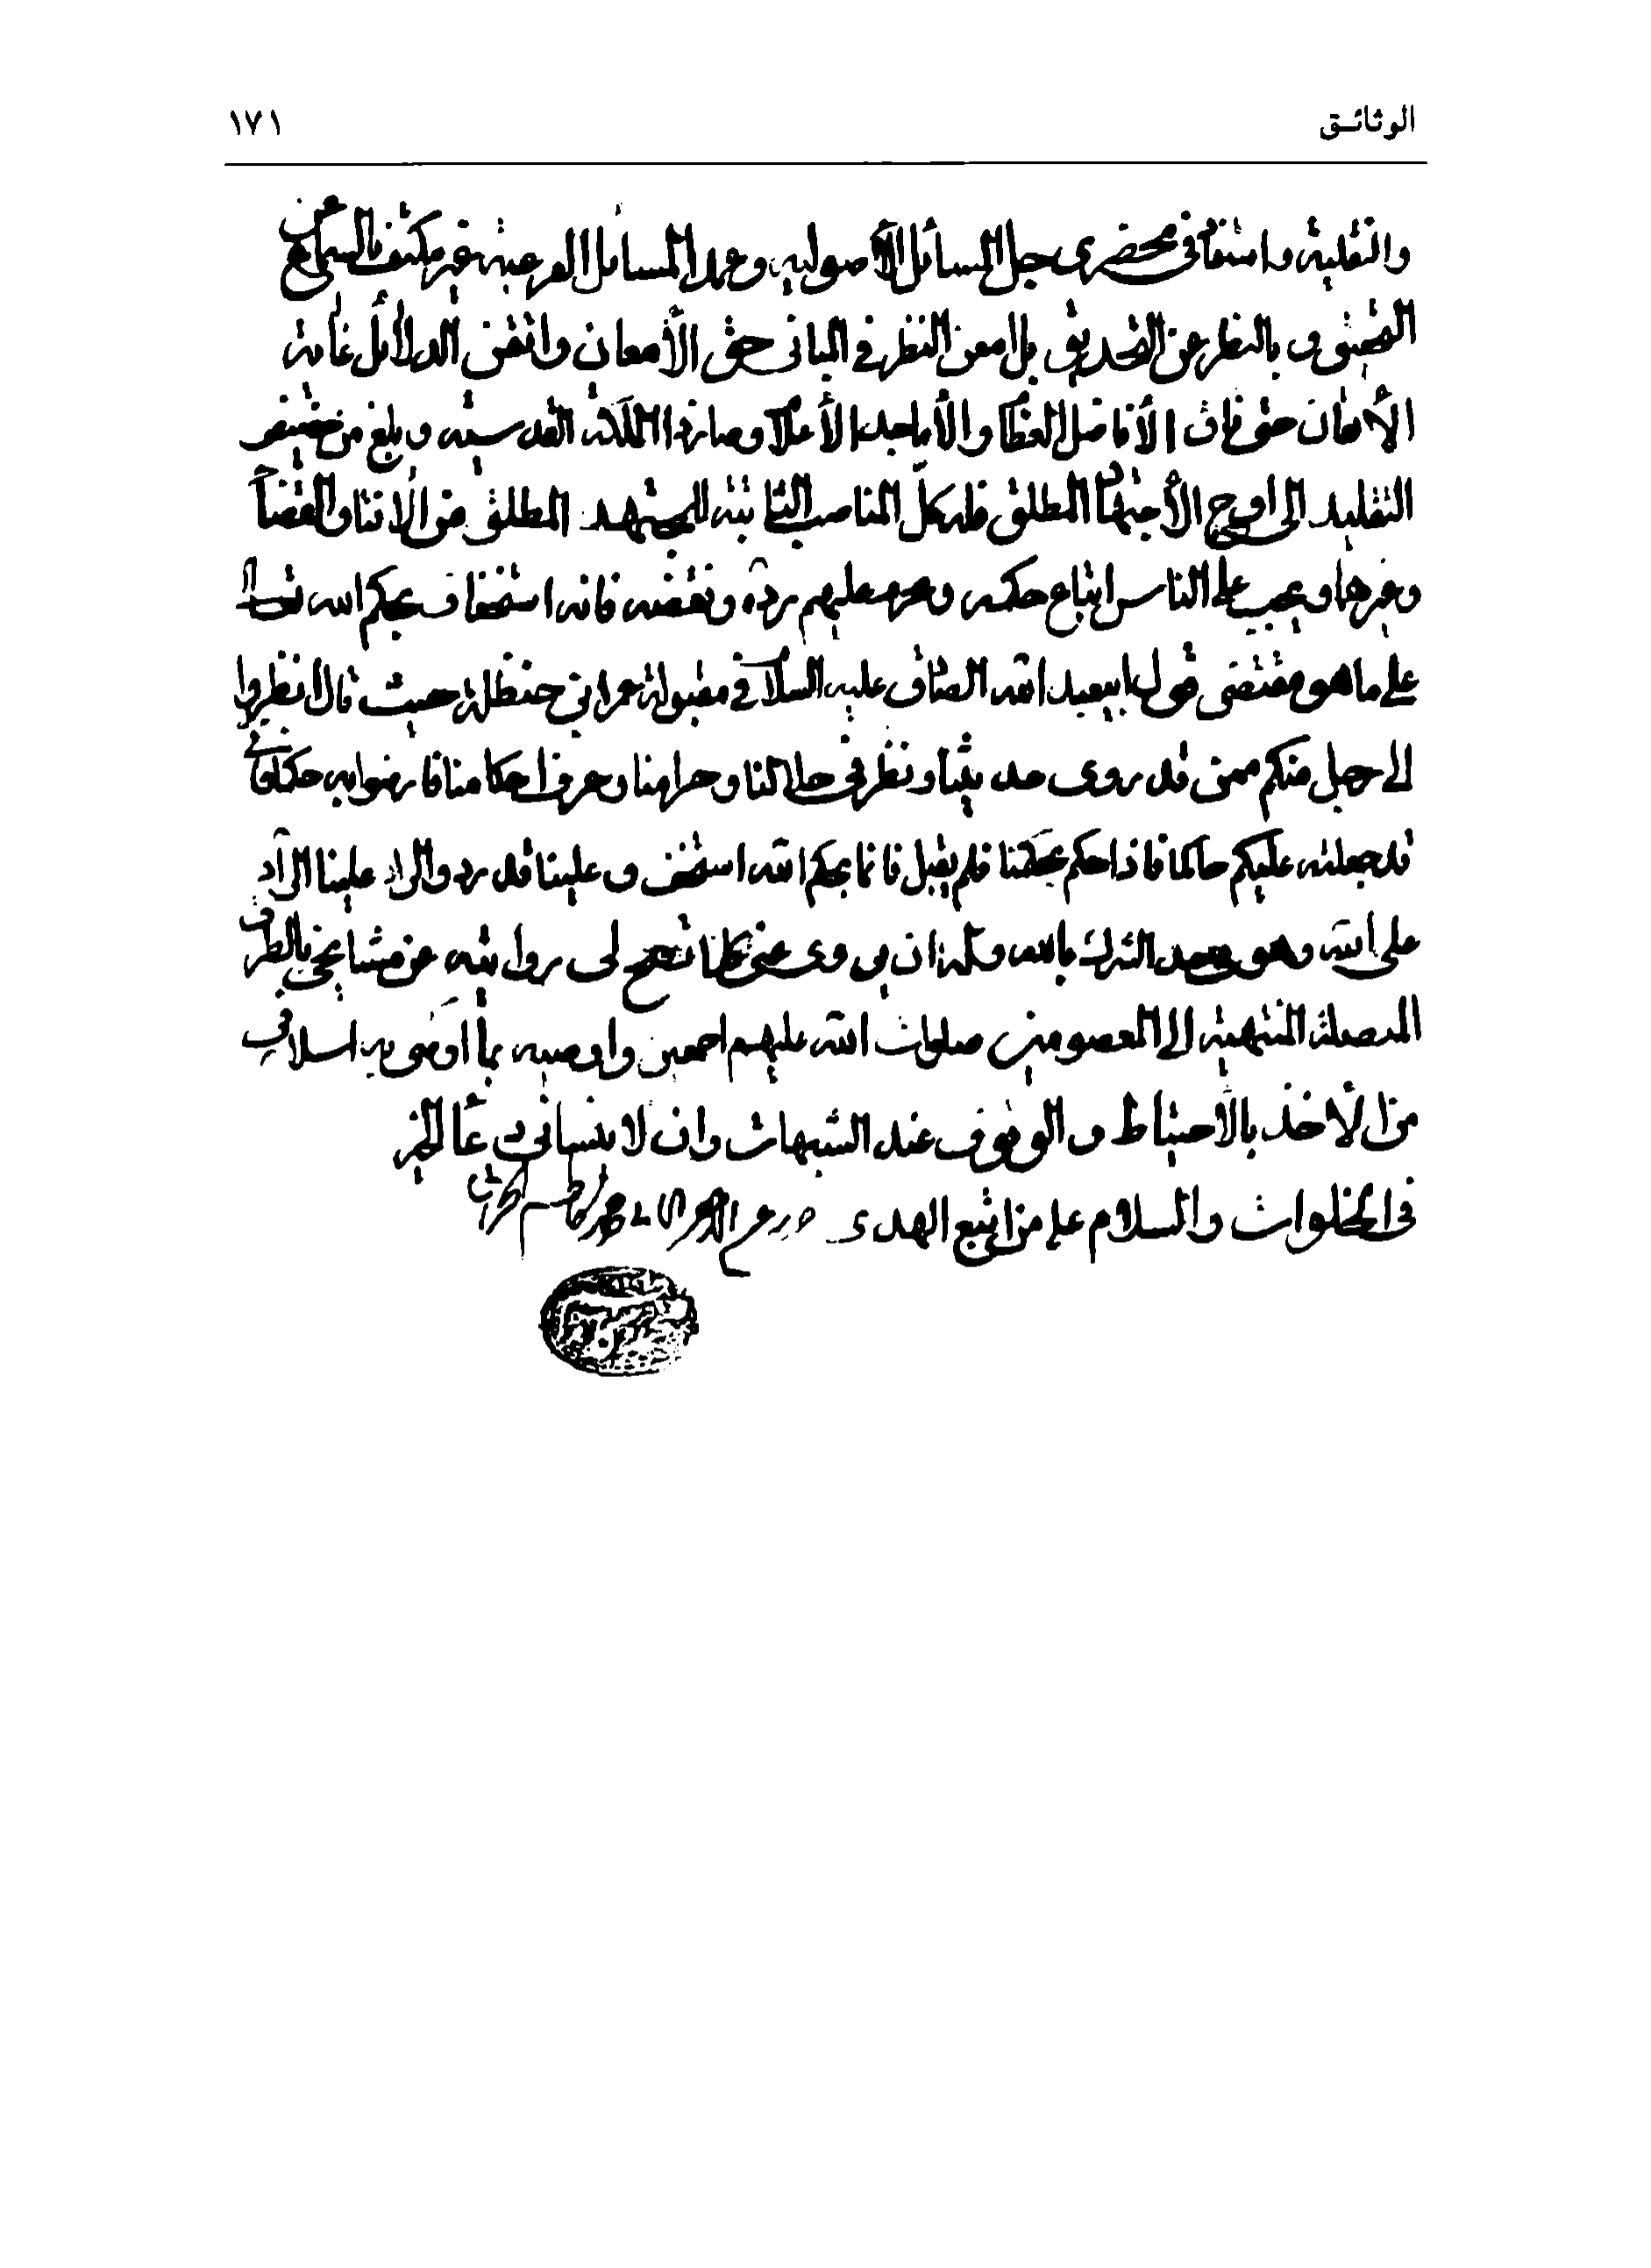 الوثائـق
١٧١
والنقلية واستفاد في محضري جل المسائل الأصوليه وعمد المسائل الفرعية غير مكتف بالسماع عن
التحقيق و بالنظر عن التحديق بل امعن النظر في المباني حق الأمعان واتقن الدلائل غاية
الأتقان حتى فاق الأفاضل العظام والأماجد الأعلام وصار ذا الملكة القدسية و بلغ من حضيض
التقليد الى اوج الأجتهاد المطلق فله كل المناصب الثابتة للمجتهد المطلق من الافتاء والقضاء
وغيرها ويجب على الناس اتباع حكمه ويحرم عليهم رده ونقضه فانه استخفاف بحكم الله تعالى
على ما هو مقتضى قول ابيعبد الله الصادق عليه السلام في مقبولة عمر ابن حنظلة حيث قال انظروا
الى رجل منكم ممن قد روى حديثنا ونظر في حلالنا وحرامنا وعرف احكامنا فارضوا به حكما فاني
قد جعلته عليكم حاكما فاذا حكم بحكمنا فلم يقبل فانما بحكم الله استخف و علينا قد رد والراد علينا الراد
على الله وهو بحد الشرك بالله وله ان يروى عني كلما تصح لى روايته عن مشايخي بالطرق
المتصلة المنتهية الى المعصومين صلوات الله عليهم اجمعين واوصيه بما اوصى به اسلافي
من الأخذ بالأحتياط و الوقوف عند الشبهات وان لا ينساني من دعاء الخير
في الخلوات والسلام على من اتبع الهدى